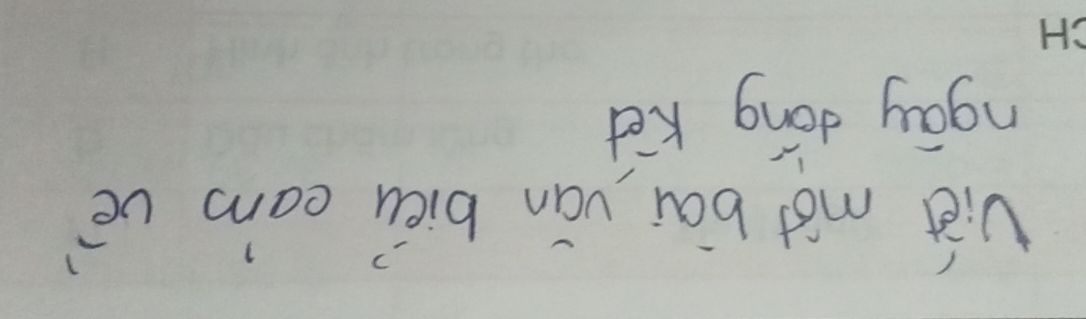 Viết một bài văn biểu cảm về
ngày đông kết
CH